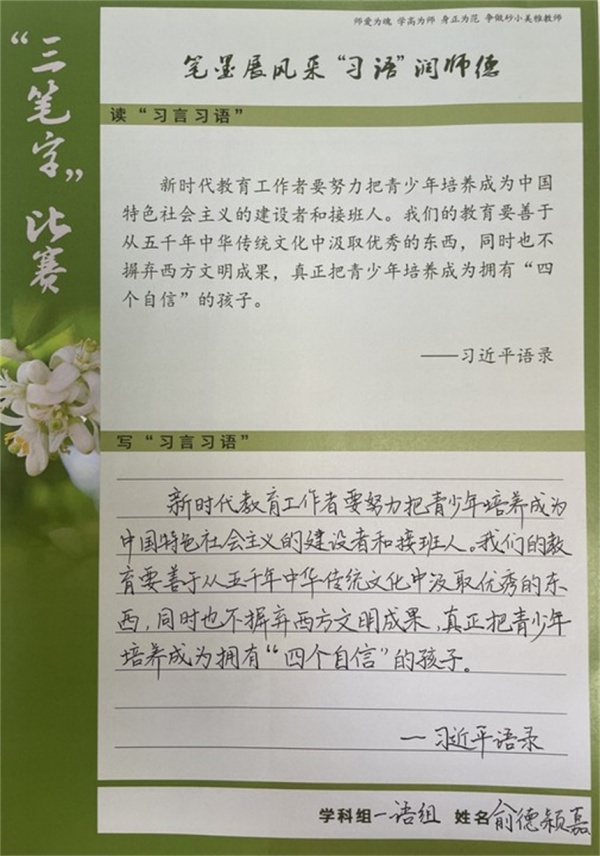 师爱为魂 学高为师 身正为范 争做砂小美雅教师
“三笔字”比赛
笔墨展风采“习语”润师德
读“习言习语”
新时代教育工作者要努力把青少年培养成为中国
特色社会主义的建设者和接班人。我们的教育要善于
从五千年中华传统文化中汲取优秀的东西，同时也不
摒弃西方文明成果，真正把青少年培养成为拥有“四
个自信”的孩子。
——习近平语录
写“习言习语”
新时代教育工作者要努力把青少年培养成为
中国特色社会主义的建设者和接班人。我们的教
育要善于从五千年中华传统文化中汲取优秀的东
西，同时也不摒弃西方文明成果，真正把青少年
培养成为拥有“四个自信”的孩子。
—习近平语录
学科组 一语组 姓名 俞德颖嘉